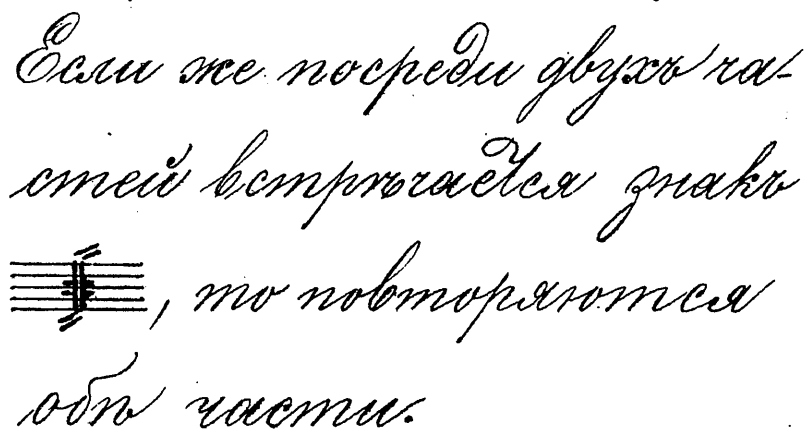 Если же посреди двухъ ча-
стей встрѣчается знакъ
, то повторяются
обѣ части.